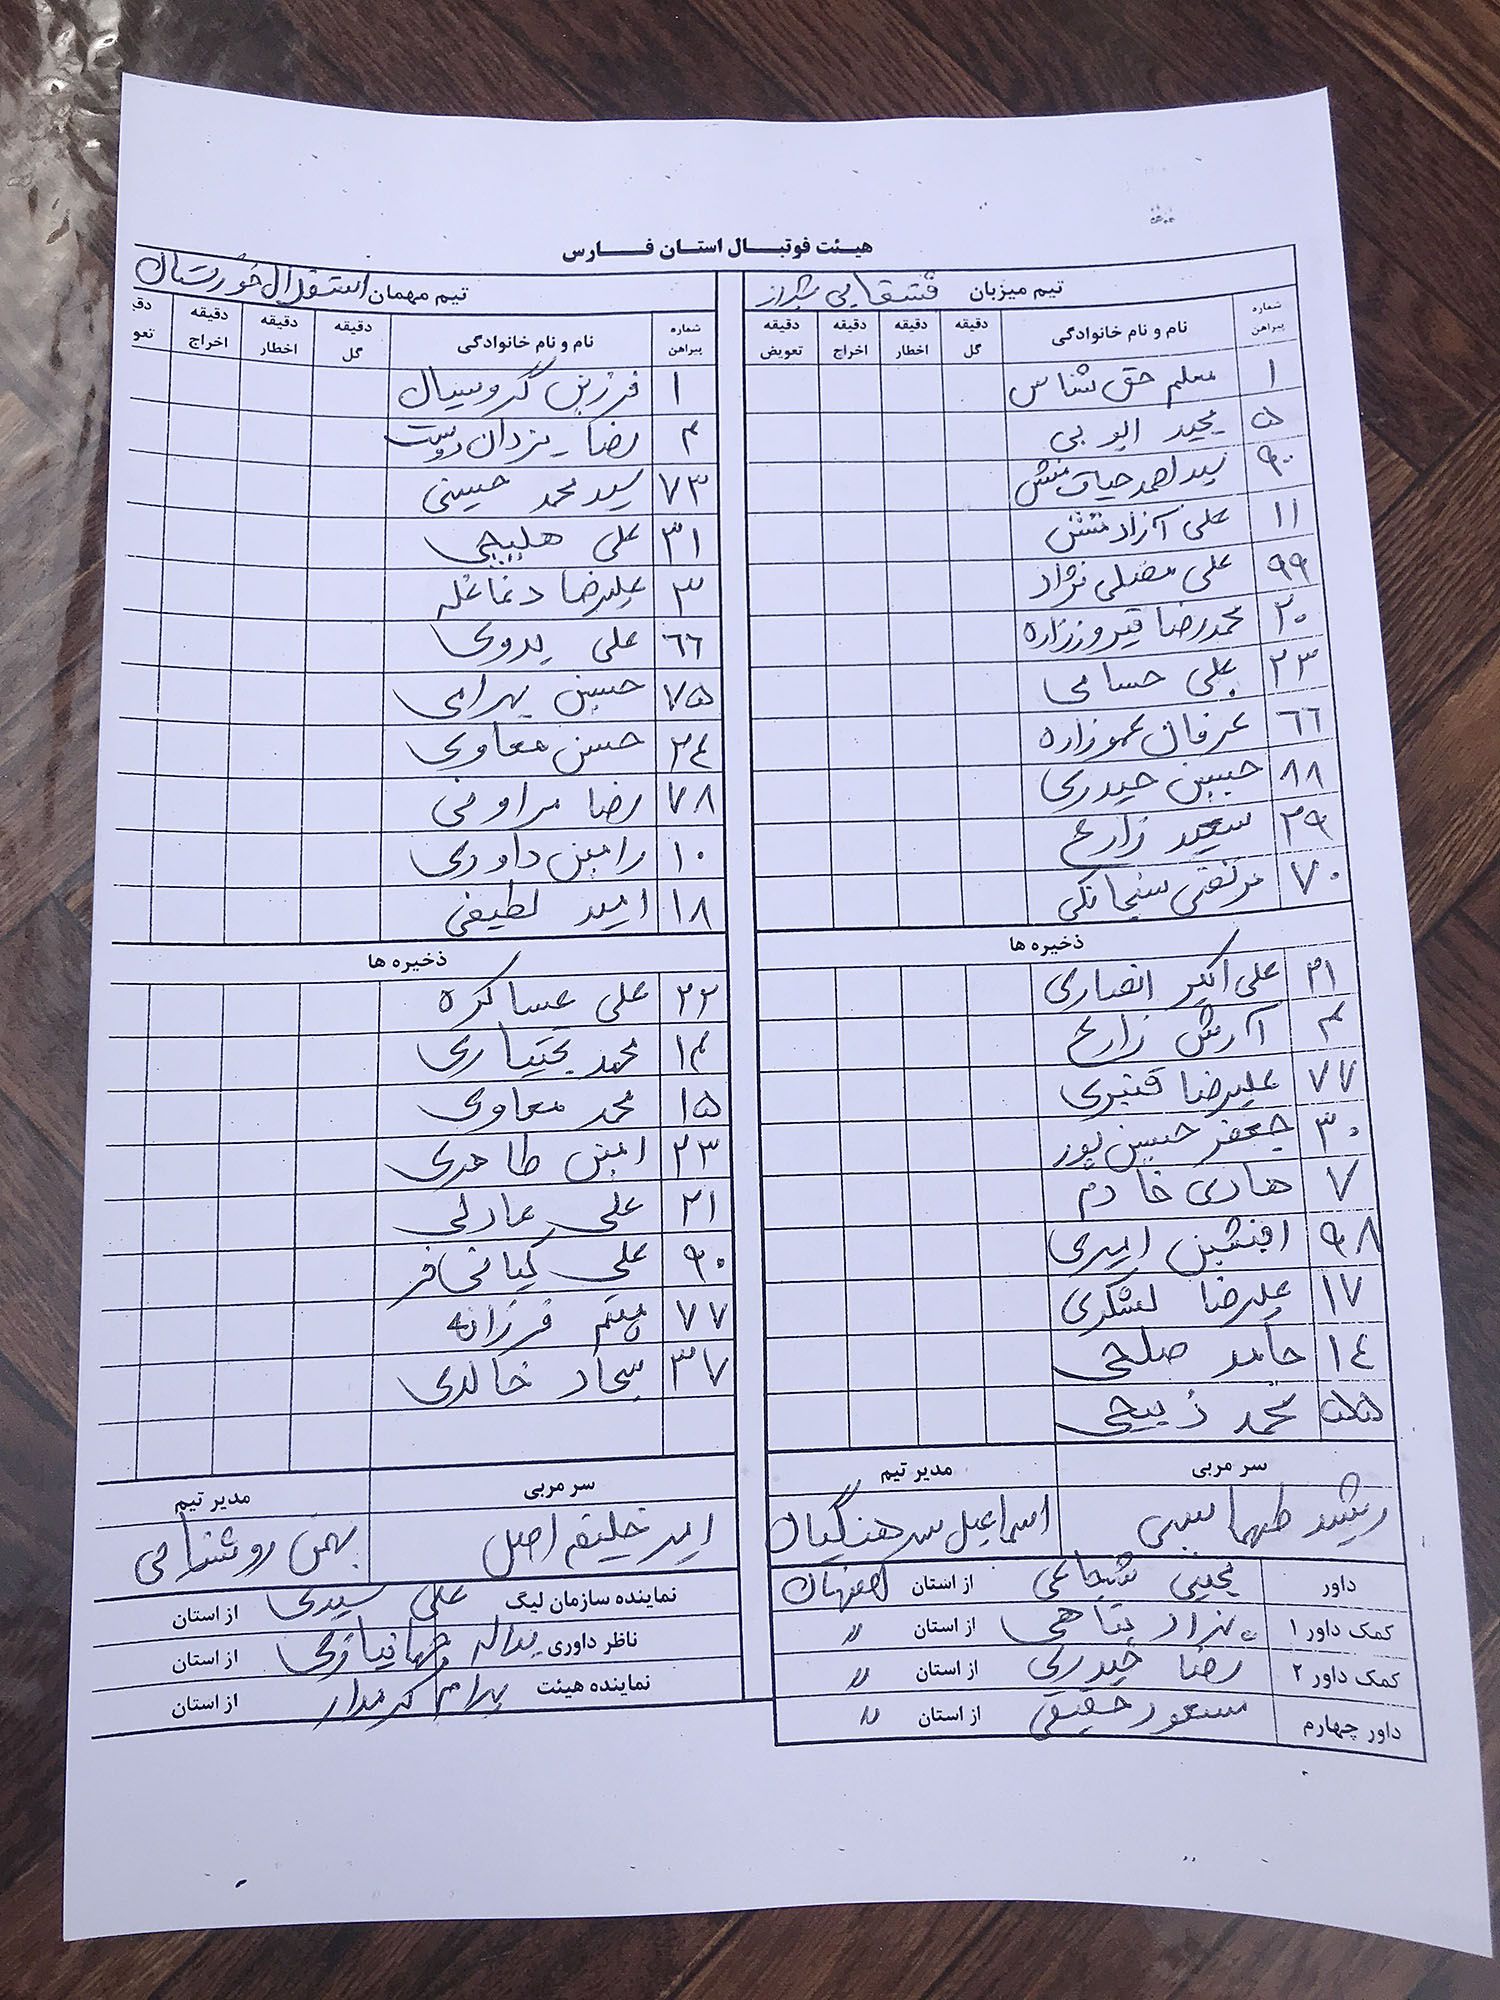 هیئت فوتبال استان فارس
تیم میزبان قشقایی شیراز
شماره پیراهن نام و نام خانوادگی دقیقه گل دقیقه اخطار دقیقه اخراج دقیقه تعویض
۱ معلم حق شناس
۵ مجید ایوبی
۹۰ سید احمد حیات منش
۱۱ علی آزادمنش
۹۹ علی نژاد
۲۰ محمدرضا فیروززاده
۲۳ علی حسامی
۶۶ عرفان عموزاده
۸۸ حبیبی حیدری
۲۹ سعید زارع
۷۰ مرتضی
ذخیره ها
۲۱ علی اکبر انصاری
۴ آرش زارع
۷۷ علیرضا قنبری
۳۰ جعفر حسین پور
۷ هادی خادم
۹۸ افشین امیری
۱۷ علیرضا لشکری
۱۴ حامد صلحی
۵۵ محمد ذبیحی
سر مربی مدیر تیم
رشید طهماسبی اسماعیل سرهنگیان
داور یحیی شجاعی از استان اصفهان
کمک داور ۱ پناهی از استان "
کمک داور ۲ رضا حیدری از استان "
داور چهارم مسعود حقیقی از استان "
تیم مهمان استقلال خوزستان
شماره پیراهن نام و نام خانوادگی دقیقه گل دقیقه اخطار دقیقه اخراج دقی تعو
۱ فرزین گروسیان
۴ رضا یزدان دوست
۷۳ سید محمد حسینی
۳۱ علی هلیچی
۳ علیرضا دغاغله
۶۶ علی بدوی
۷۵ حسین بهرامی
۲۴ حسن معاوی
۷۸ رضا مراومی
۱۰ رامین داوری
۱۸ امید لطیفی
ذخیره ها
۲۲ علی عساکره
۱۴ محمد بختیاری
۱۵ محمد معاوی
۲۳ امین طاهری
۲۱ علی عادلی
۹۰ علی کیانی فر
۷۷ میثم فرزانه
۳۷ سجاد خالدی
سر مربی مدیر تیم
امیر خلیفه اصل بهمن روشنایی
نماینده سازمان لیگ علی سیدی از استان
ناظر داوری یداله جهانبازی از استان
نماینده هیئت بهرام کرمدار از استان